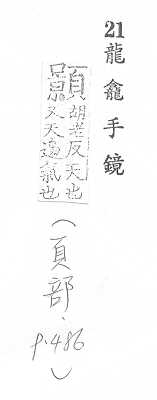 21 龍龕手鏡
顥 胡老反天也
又天邊氣也
(頁部, p.486)